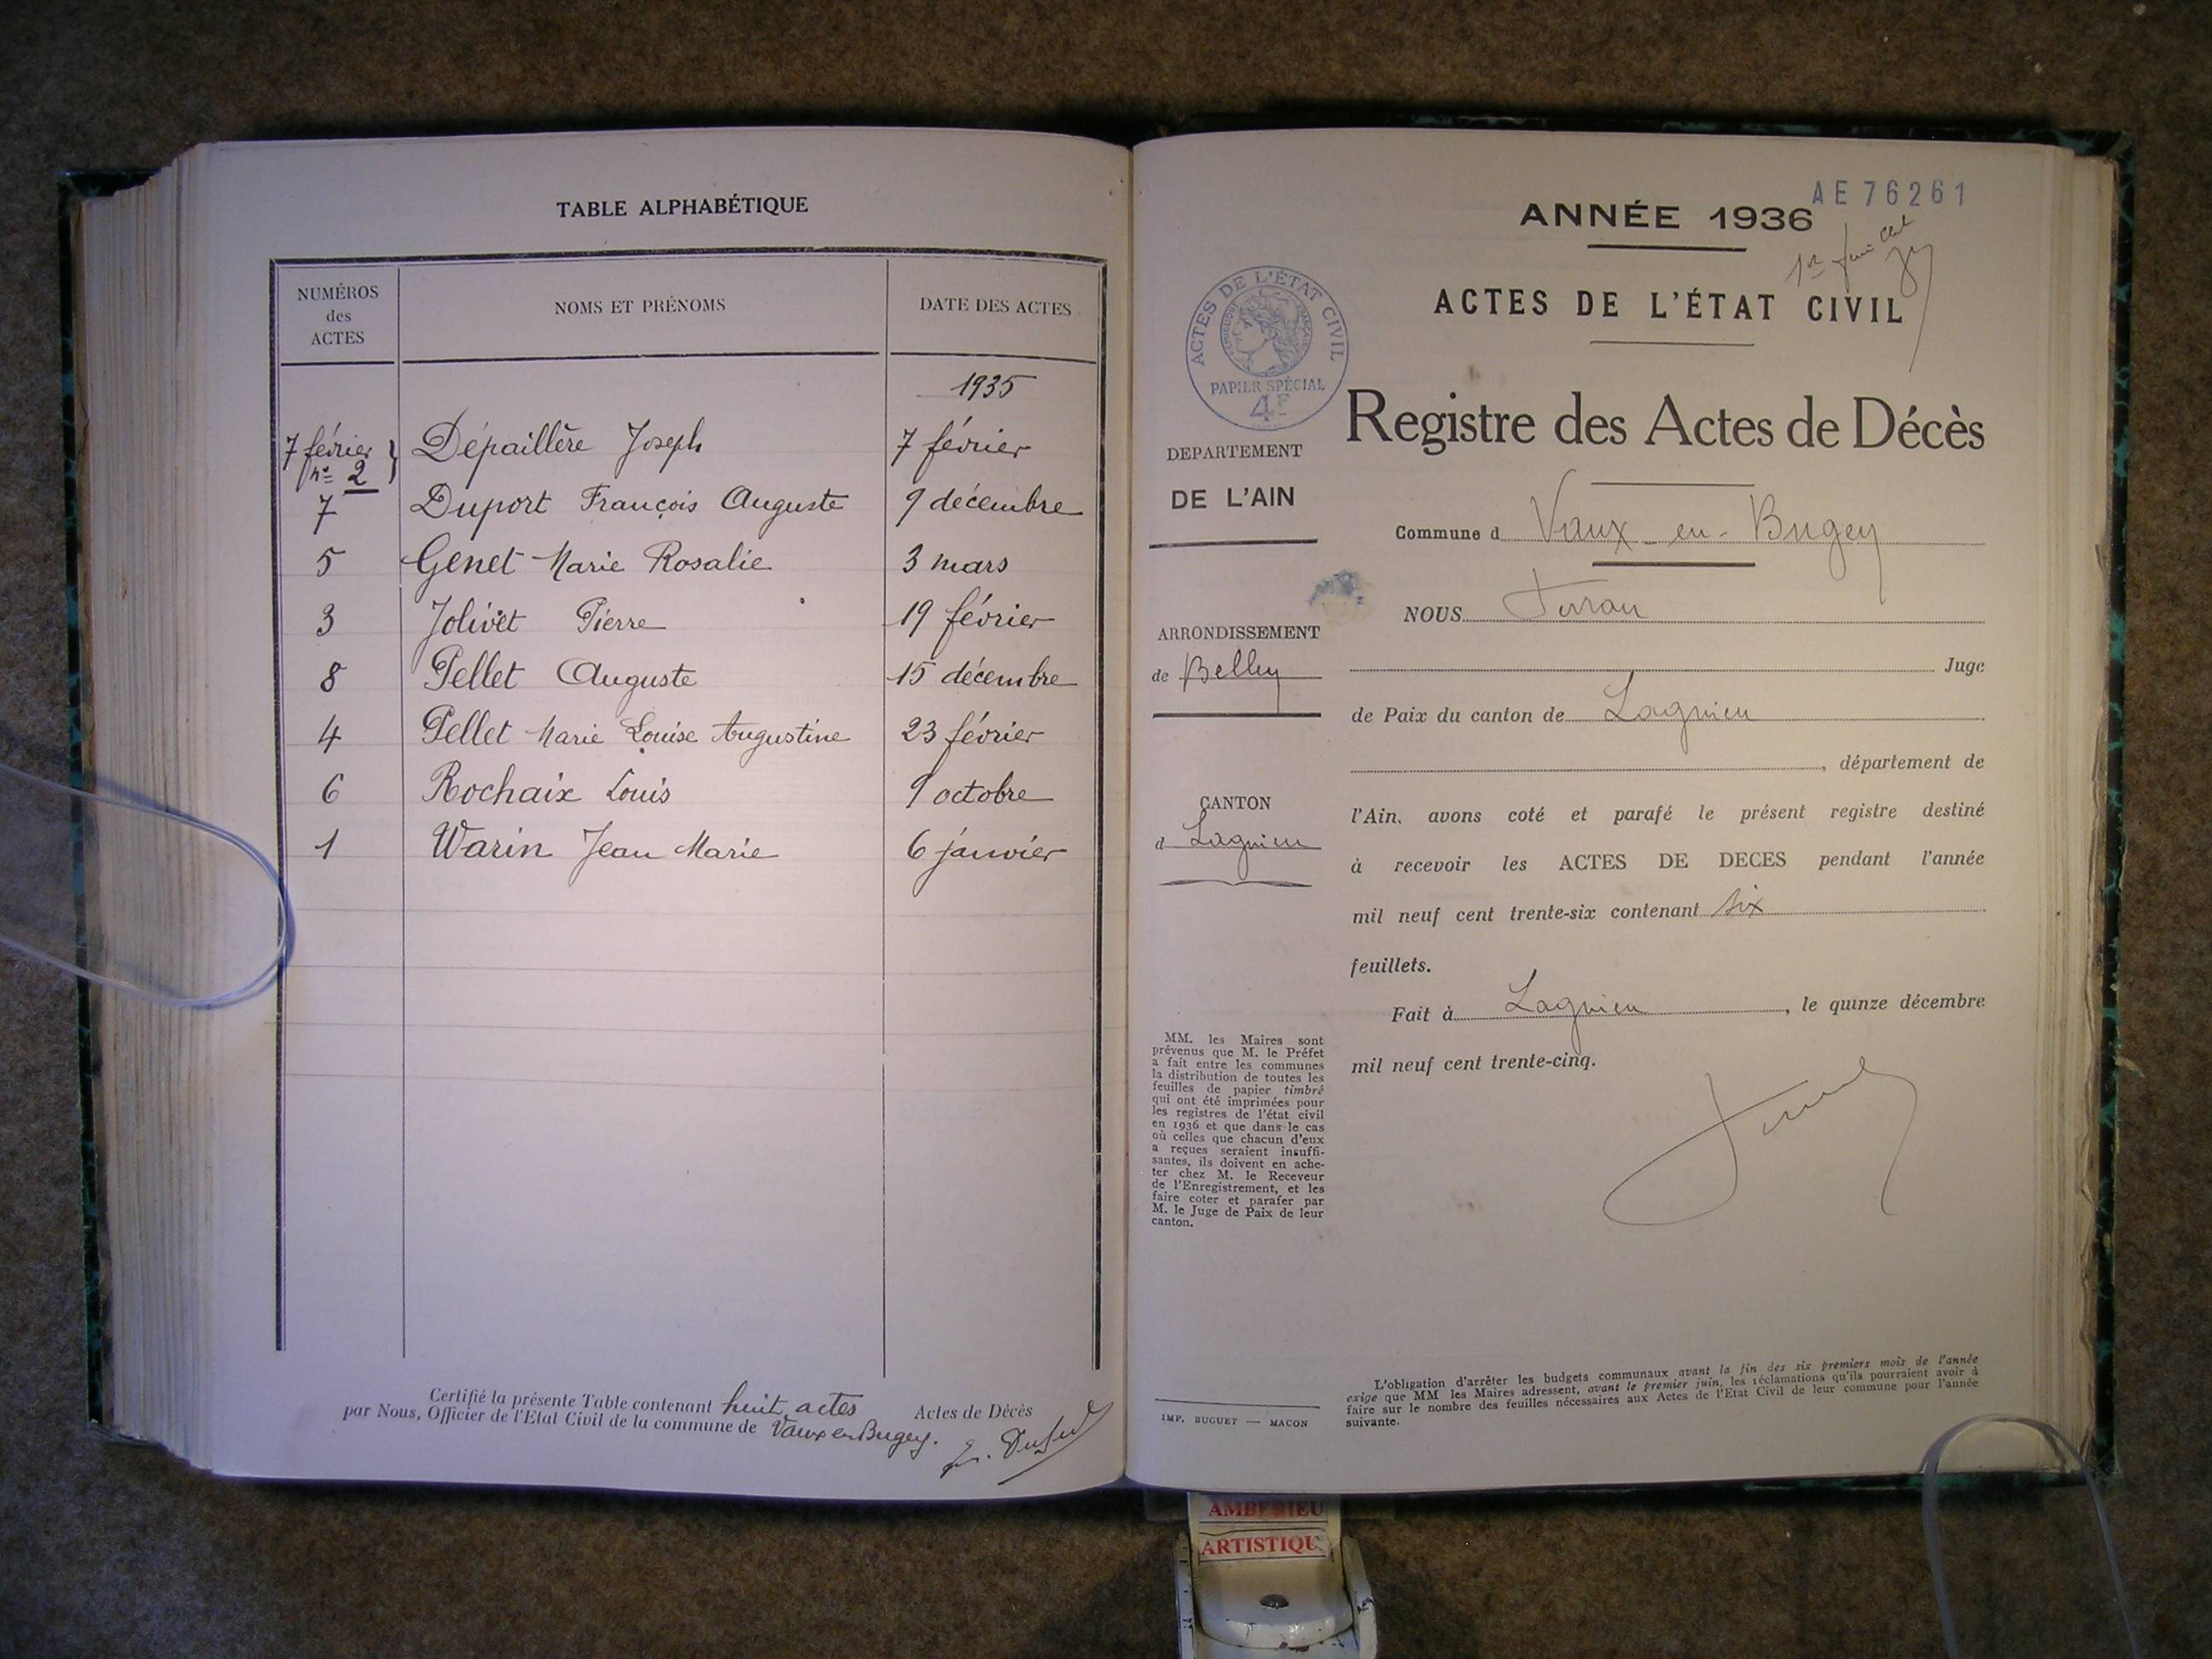 TABLE ALPHABÉTIQUE
NUMÉROS des ACTES
NOMS ET PRÉNOMS
DATE DES ACTES
1935
7 février n° 2 } Dépaillère Joseph 7 février
7 Duport François Auguste 9 décembre
5 Genet Marie Rosalie 3 mars
3 Jolivet Pierre 19 février
8 Pellet Auguste 15 décembre
4 Pellet Marie Louise Augustine 23 février
6 Rochaix Louis 9 octobre
1 Warin Jean Marie 6 janvier
Certifié la présente Table contenant huit actes Actes de Décès
par Nous, Officier de l'Etat Civil de la commune de Vaux en Bugey.
AE 76261
ANNÉE 1936
ACTES DE L'ÉTAT CIVIL
ACTES DE L'ÉTAT CIVIL
RÉPUBLIQUE FRANÇAISE
PAPIER SPÉCIAL
4F
Registre des Actes de Décès
DEPARTEMENT
DE L'AIN
Commune d Vaux-en-Bugey
NOUS
ARRONDISSEMENT
de Belley
Juge
de Paix du canton de Lagnieu
, département de
CANTON
d Lagnieu
l'Ain, avons coté et parafé le présent registre destiné
à recevoir les ACTES DE DECES pendant l'année
mil neuf cent trente-six contenant six
feuillets.
Fait à Lagnieu, le quinze décembre
mil neuf cent trente-cinq.
MM. les Maires sont
prévenus que M. le Préfet
a fait entre les communes
la distribution de toutes les
feuilles de papier timbré
qui ont été imprimées pour
les registres de l'état civil
en 1936 et que dans le cas
où celles que chacun d'eux
a reçues seraient insuffi-
santes, ils doivent en ache-
ter chez M. le Receveur
de l'Enregistrement, et les
faire coter et parafer par
M. le Juge de Paix de leur
canton.
IMP. BUGUET — MACON
L'obligation d'arrêter les budgets communaux avant la fin des six premiers mois de l'année
exige que MM les Maires adressent, avant le premier juin, les réclamations qu'ils pourraient avoir à
faire sur le nombre des feuilles nécessaires aux Actes de l'Etat Civil de leur commune pour l'année
suivante.
AMBERIEU
ARTISTIQU